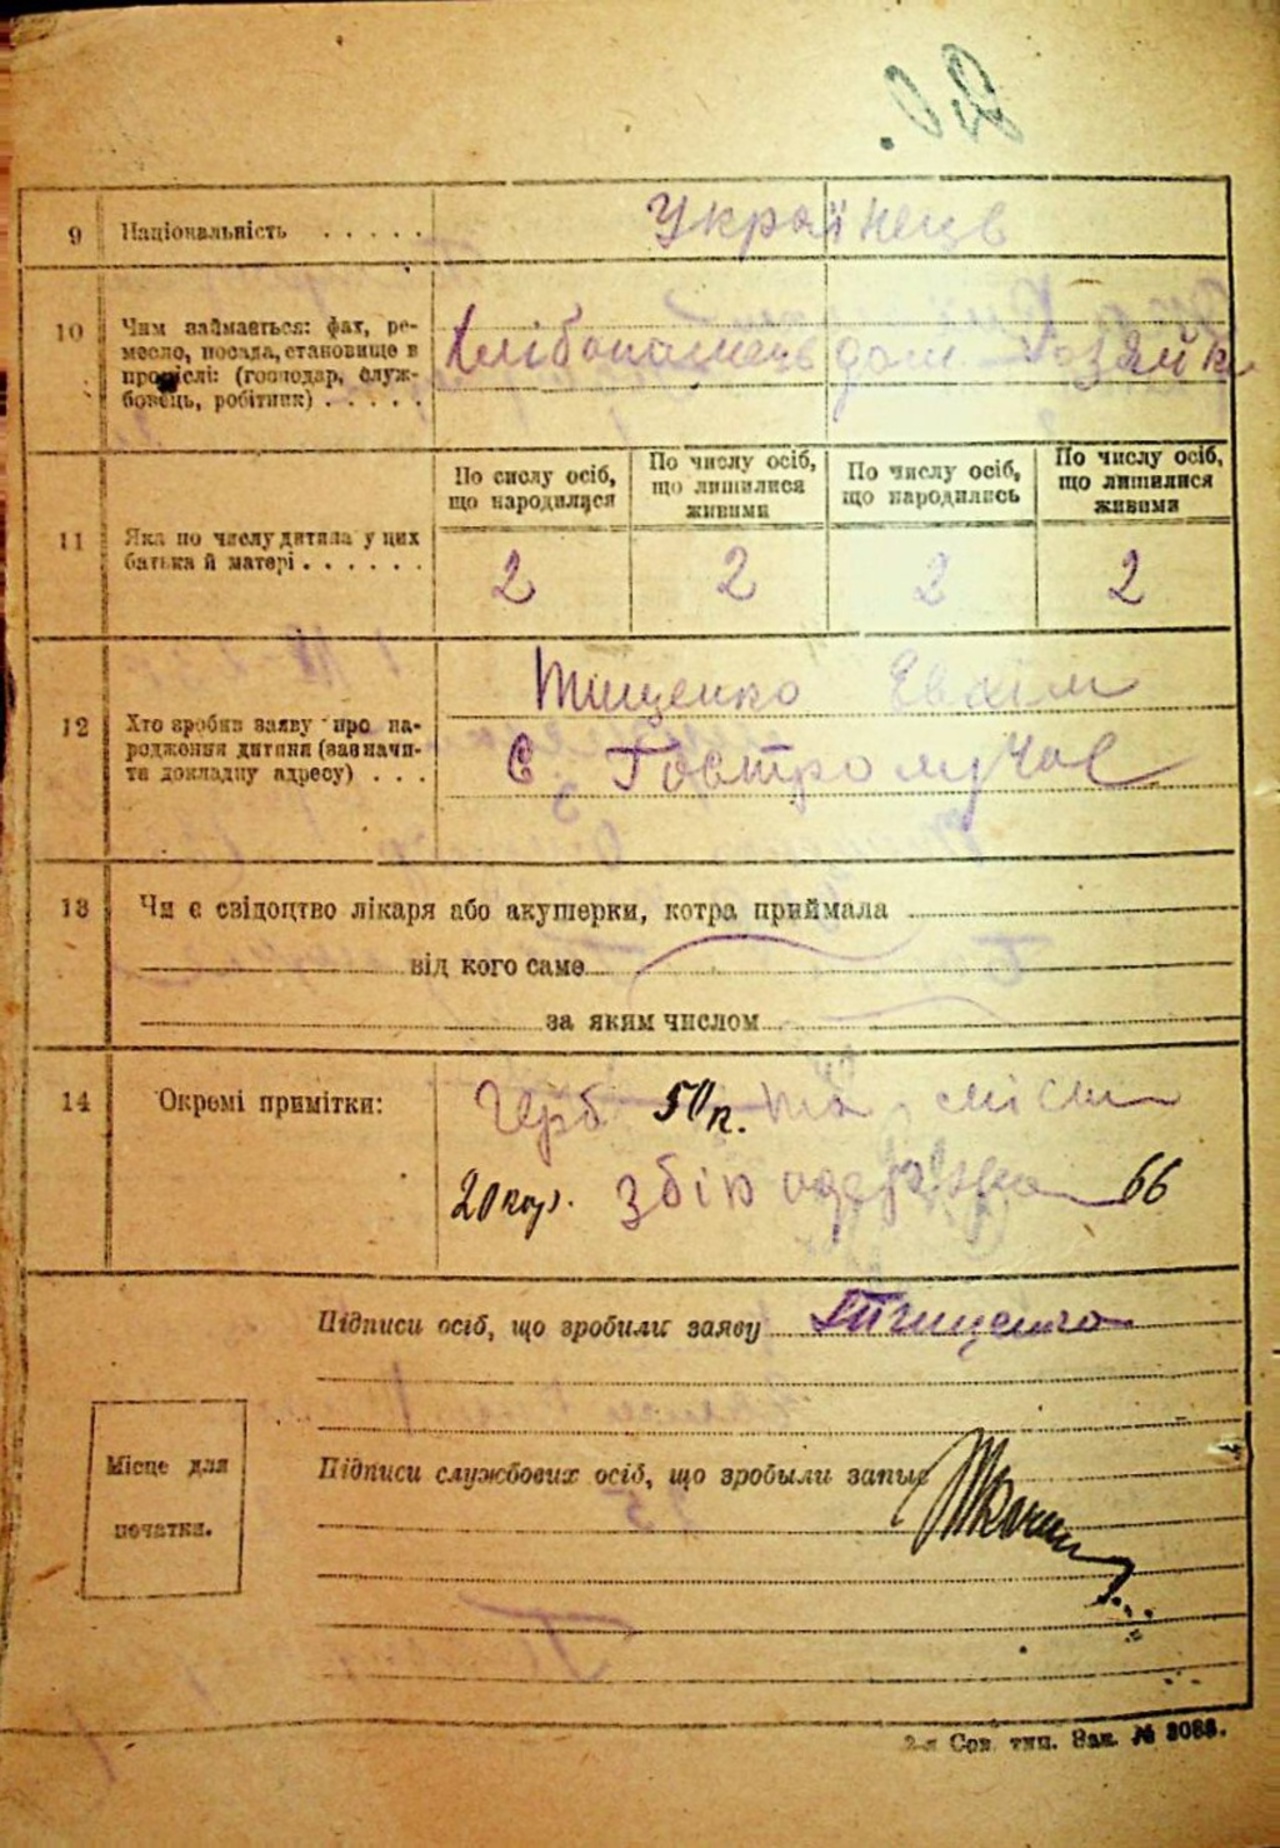 9 Національність . . . . . Українець
10 Чим займається: фах, ре-
месло, посада, становище в
промислі: (господар, служ-
бовець, робітник) . . . . .
Хлібопашець дом хозяйк
11 Яка по числу дитина у цих
батька й матері . . . . . .
По сислу осіб, що народилися
По числу осіб, що лишилися живими
По числу осіб, що народились
По числу осіб, що лишилися живими
2 2 2 2
12 Хто зробив заяву про на-
родження дитини (зазначи-
ти докладну адресу) . . .
Тищенко
С Гостролучче
13 Чи є свідоцтво лікаря або акушерки, котра приймала
від кого саме
за яким числом
14 Окремі примітки:
Герб 50 п. та місц
20 кор. збір 66
Підписи осіб, що зробили заяву Тищенко
Підписи службових осіб, що зробыли запыс
Місце для
печатки.
2-я Сов. тип. Зак. № 3088.